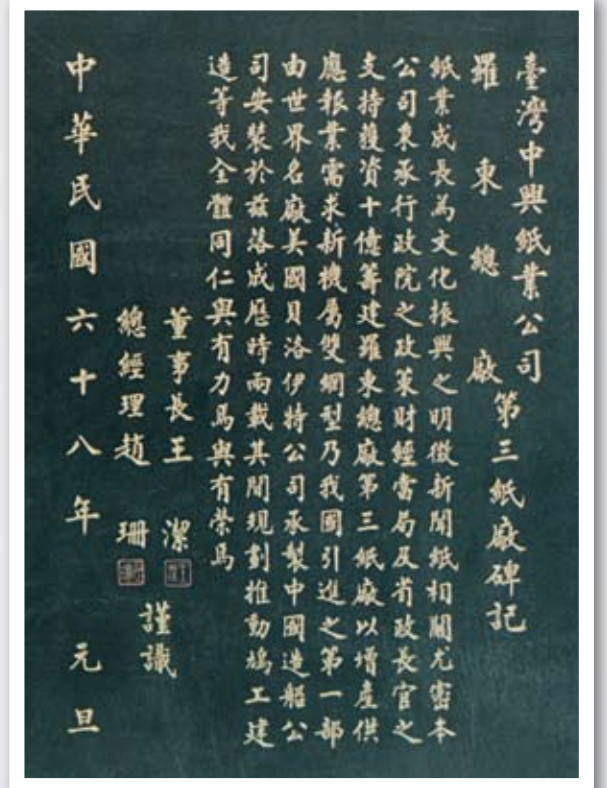 臺灣中興紙業公司
羅東總廠
第三紙廠碑記
紙業成長為文化振興之明徵新聞紙相關尤密本
公司秉承行政院之政策財經當局及省政長官之
支持獲資十億籌建羅東總廠第三紙廠以增產供
應報業需求新機屬雙網型乃我國引進之第一部
由世界名廠美國貝洛伊特公司承製中國造船公
司安裝於茲落成歷時兩載其間規劃推動鳩工建
造等我全體同仁與有力焉與有榮焉
董事長王 潔
總經理趙 珊
謹識
中華民國六十八年 元旦